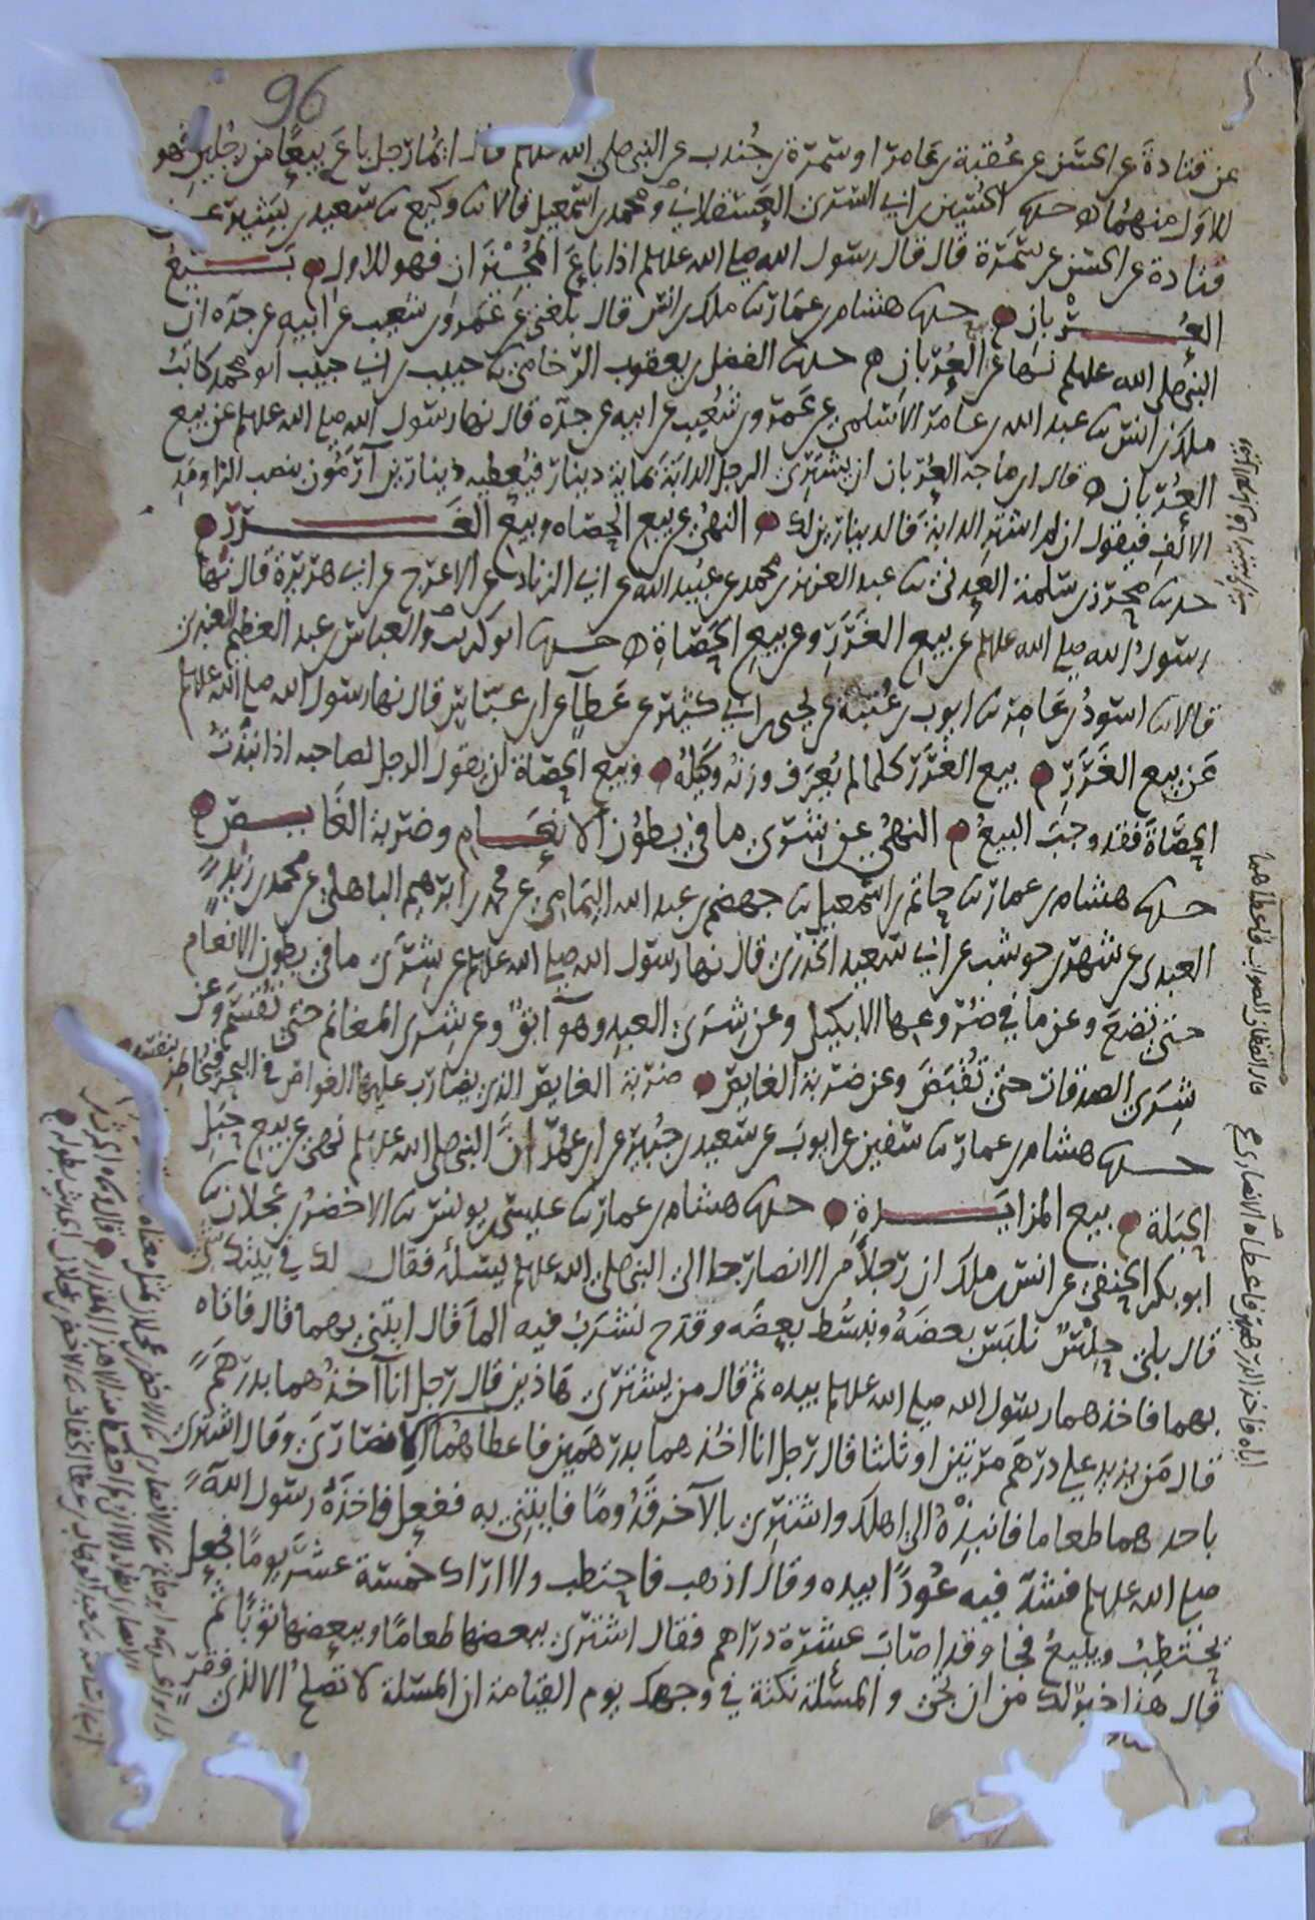 96
عن قتادة عن الحسن عن عقبة بن عامر او سمرة بن جندب عن النبي صلى الله علسلم قال ايما رجل باع بيعا من رجلين فهو
للاول منهما حدثنا الحسين بن ابي السري العسقلاني ومحمد بن اسمعيل قالا ثنا وكيع ثنا سعيد بن بشير عن
قتادة عن الحسن عن سمرة قال قال رسول الله صلى الله علسلم اذا باع المجيزان فهو للاول بيع
العربان حدثنا هشام بن عمار ثنا ملك بن انس قال بلغني عن عمرو بن شعيب عن ابيه عن جده ان
النبي صلى الله علسلم نها عن العربان حدثنا الفضل بن يعقوب الرخامي ثنا حبيب بن ابي حبيب ابو محمد كاتب
ملك بن انس ثنا عبد الله بن عامر الاسلمي عن عمرو بن شعيب عن ابيه عن جده قال نها رسول الله صلى الله علسلم عن بيع
العربان قال ابن ماجه العربان ان يشتري الرجل الدابة بماية دينار فيعطيه دينارين اربون بنصب الرا ومد
الالف فيقول ان لم اشتر الدابة فالدينارين لك النهي عن بيع الحصاه وبيع الغرر
حدثنا محرز بن سلمة العدني ثنا عبد العزيز بن محمد عن عبيد الله عن ابي الزناد عن الاعرج عن ابي هريرة قال نها
رسول الله صلى الله علسلم عن بيع الغرر وعن بيع الحصاة حدثنا ابو كريب والعباس بن عبد العظيم العنبري
قالا ثنا اسود بن عامر ثنا ايوب بن عتبة عن يحيى بن ابي كثير عن عطآ عن ابن عباس قال نها رسول الله صلى الله علسلم
عن بيع الغرر بيع الغرر كلما لم يعرف وزنه وكيله وبيع الحصاة ان يقول الرجل لصاحبه اذا نبذت
الحصاة فقد وجب البيع النهي عن شرى ما في بطون الانعام وضربة الغايص
حدثنا هشام بن عمار ثنا حاتم بن اسمعيل ثنا جهضم بن عبد الله اليمامي عن محمد بن ابرهيم الباهلي عن محمد بن زيد
العبدي عن شهر بن حوشب عن ابي سعيد الخدري قال نها رسول الله صلى الله علسلم عن شرى ما في بطون الانعام
حتى تضع وعن ما في ضروعها الا بكيل وعن شرى العبد وهو آبق وعن شرى المغانم حتى تقسم وعن
شرى الصدقات حتى تقبض وعن ضربة الغايص ضربة الغايص الذي يضارب عليها الغواص في البحر فيخاطر بنفسه
حدثنا هشام بن عمار ثنا سفين عن ايوب عن سعيد بن جبير عن ابن عمر ان النبي صلى الله علسلم نهى عن بيع حبل
الحبلة بيع المزايدة حدثنا هشام بن عمار ثنا عيسى بن يونس ثنا الاخضر بن عجلان ثنا
ابو بكر الحنفي عن انس بن ملك ان رجلا من الانصار جا الى النبي صلى الله علسلم يسله فقال لك في بيتك شي
قال بلى حلس نلبس بعضه ونبسط بعضه وقدح نشرب فيه الما قال ايتني بهما قال فاتاه
بهما فاخذهما رسول الله صلى الله علسلم بيده ثم قال من يشتري هاذين قال رجل انا آخذهما بدرهم
قال من يزيد على درهم مرتين او ثلثا قال رجل انا اخذهما بدرهمين فاعطاهما الانصاري وقال اشتري
باحدهما طعاما فانبذه الى اهلك واشتري بالآخر قدوما فايتني به ففعل فاخذه رسول الله
صلى الله علسلم فشد فيه عودا بيده وقال اذهب فاحتطب ولا اراك خمسة عشر يوما فجعل
يحتطب ويبيع فجا وقد اصاب عشرة دراهم فقال اشتري ببعضها طعاما وببعضها ثوبا ثم
قال هذا خير لك من ان تجي و المسلة نكتة في وجهك يوم القيامة ان المسلة لا تصلح الا لذي فقر
قال القطان الصواب فاعطاهما
اياه فاخذ الدرهمين فاعطاه الانصاري